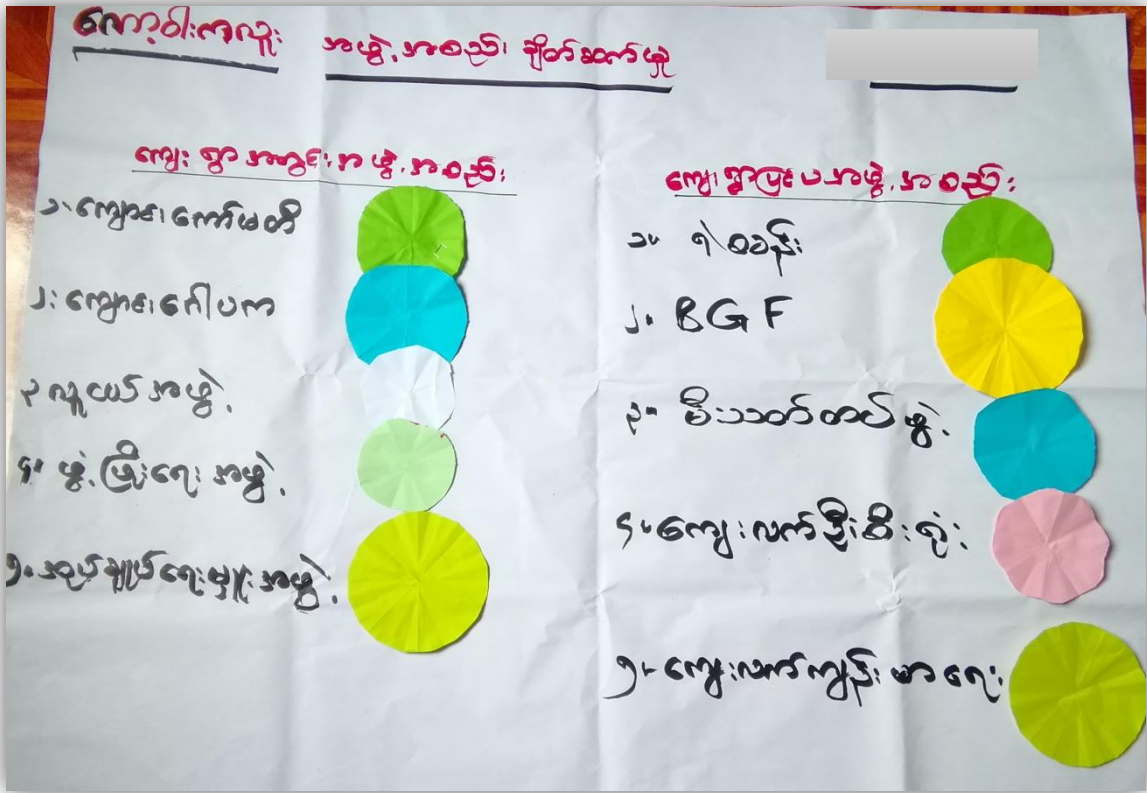 ကော့ဝါးကလူး
အဖွဲ့အစည်း ချိတ်ဆက်မှု
ကျေးရွာအတွင်းအဖွဲ့အစည်း
၁။ ကျောင်းကော်မတီ
၂။ ကျောင်းဂေါပက
၃ လူငယ်အဖွဲ့
၄။ ဖွံ့ဖြိုးရေးအဖွဲ့
၅။ အုပ်ချုပ်ရေးမှူးအဖွဲ့
ကျေးရွာပြင်ပအဖွဲ့အစည်း
၁။ ရဲစခန်း
၂။ BGF
၃။ မီးသတ်တပ်ဖွဲ့
၄။ ကျေးလက်ဦးစီးရုံး
၅။ ကျေးလက်ကျန်းမာရေး